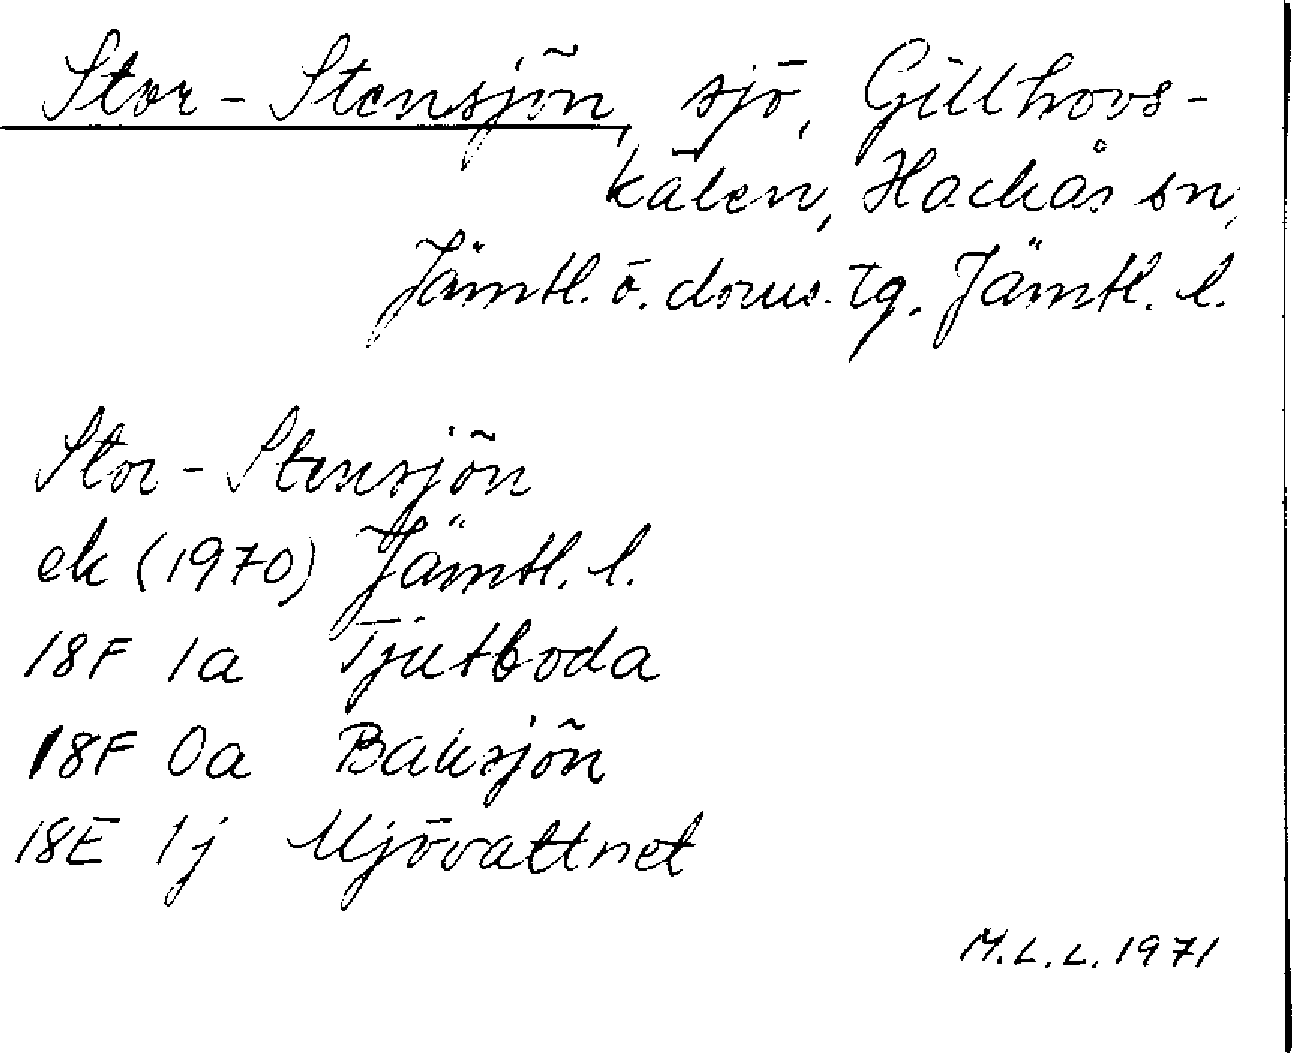 Stor-Stensjön, sjö, Gillhovs-
kälen, Hackås sn,
Jämtl. ö. doms. tg. Jämtl. l.
Stor-Stensjön
ek (1970) Jämtl. l.
18F 1a Tjutboda
18F 0a Baksjön
18E 1j Mjövattnet
M.L.L. 1971